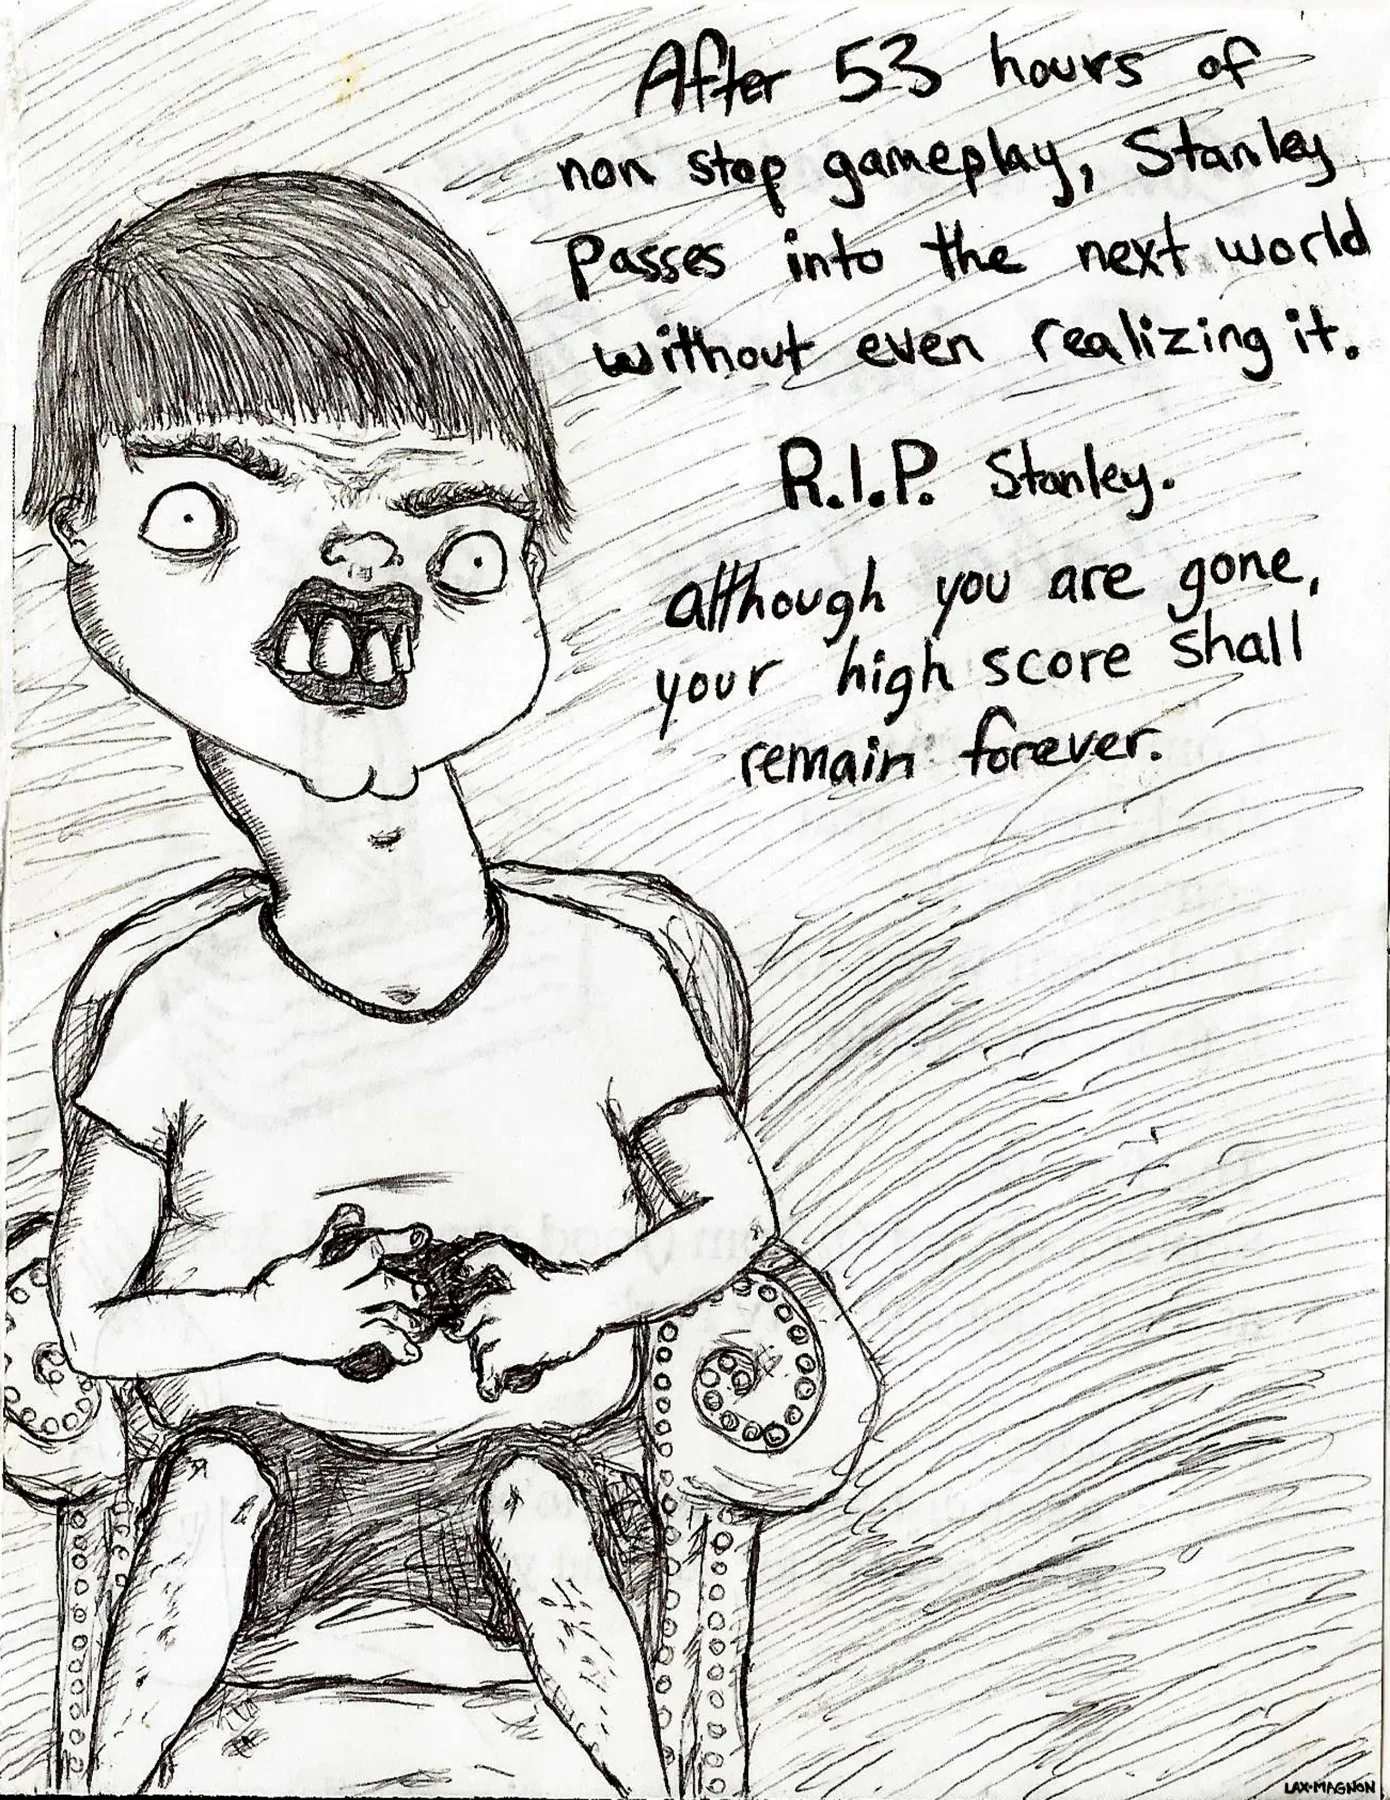 After 53 hours of
non stop gameplay, Stanley
Passes into the next world
without even realizing it.
R.I.P. Stanley.
although you are gone,
your high score shall
remain forever.
LAX-MAGNON